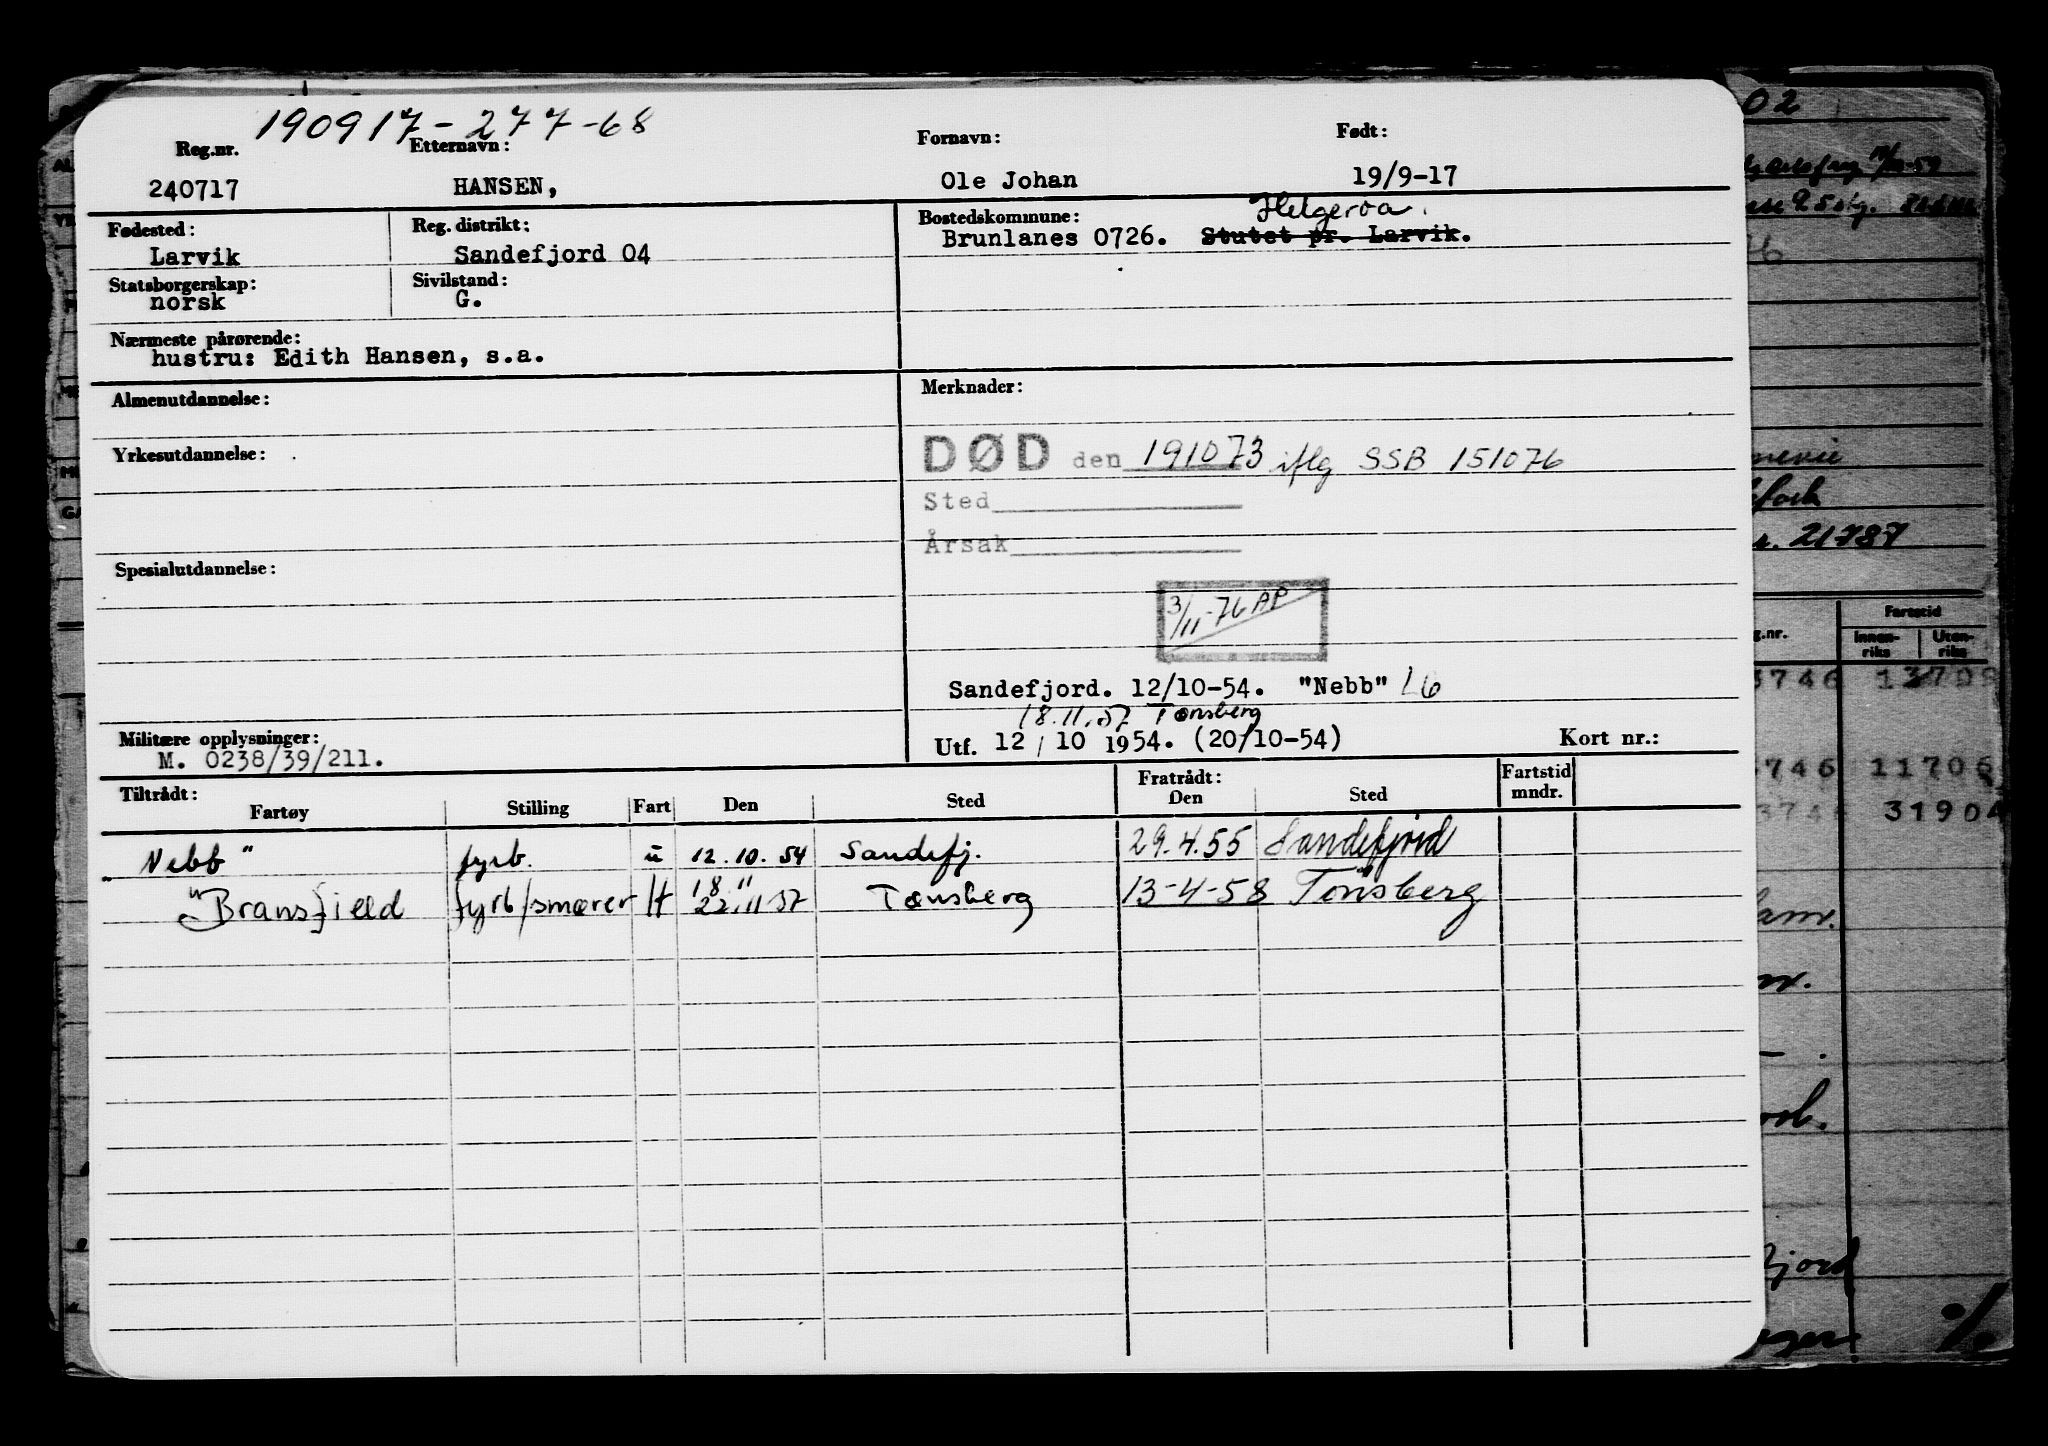 190917-277-68
Reg.nr. Etternavn: Fornavn: Født:
240717 HANSEN, Ole Johan 19/9-17
Fødested: Reg. distrikt: Bostedskommune: Helgeroa.
Larvik Sandefjord 04 Brunlanes 0726. Stutet pr. Larvik.
Statsborgerskap: Sivilstand:
norsk G.
Nærmeste pårørende:
hustru: Edith Hansen, s.a.
Almenutdannelse: Merknader:
Yrkesutdannelse: DØD den 191073 iflg SSB 151076
Sted
Årsak
Spesialutdannelse:
3/11-76 AP
Sandefjord. 12/10-54. "Nebb" L6
18.11.57 Tønsberg
Militære opplysninger: Utf. 12/10 1954. (20/10-54) Kort nr.:
M. 0238/39/211.
Tiltrådt: Fratrådt: Fartstid
Fartøy Stilling Fart Den Sted Den Sted mndr.
"Nebb" fyrb. u 12.10.54 Sandefj. 29.4.55 Sandefjord
18 "
"Bransfield fyrb/smører H 22.11.57 Tønsberg 13-4-58 Tønsberg
02
21787
Fartstid
Innen-riks Uten-riks
3746 13709
3746 11706
3746 31904